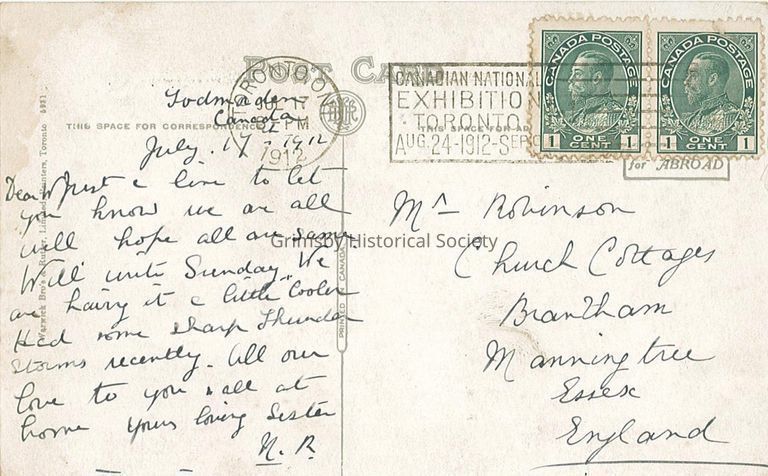 POST CARD
Todmorden
Canada
July. 17th 1912
THIS SPACE FOR CORRESPONDENCE
Dear Just a line to let
you know we are all
well hope all are same.
Will write Sunday. We
are having it a little cooler
Had some sharp Thunder
storms recently. All our
love to you & all at
home yours loving Sister
N. R.
TORONTO, ONT
JUL 17
PM
1912
CANADIAN NATIONAL
EXHIBITION
TORONTO
AUG. 24-1912-SEP
THIS SPACE FOR AD
CANADA POSTAGE
1 ONE CENT 1
CANADA POSTAGE
1 ONE CENT 1
for ABROAD
Mr Robinson
Church Cottages
Brantham
Manningtree
Essex
England
Warwick Bro's & Rutter, Limited, Printers, Toronto
PRINTED IN CANADA
Grimsby Historical Society